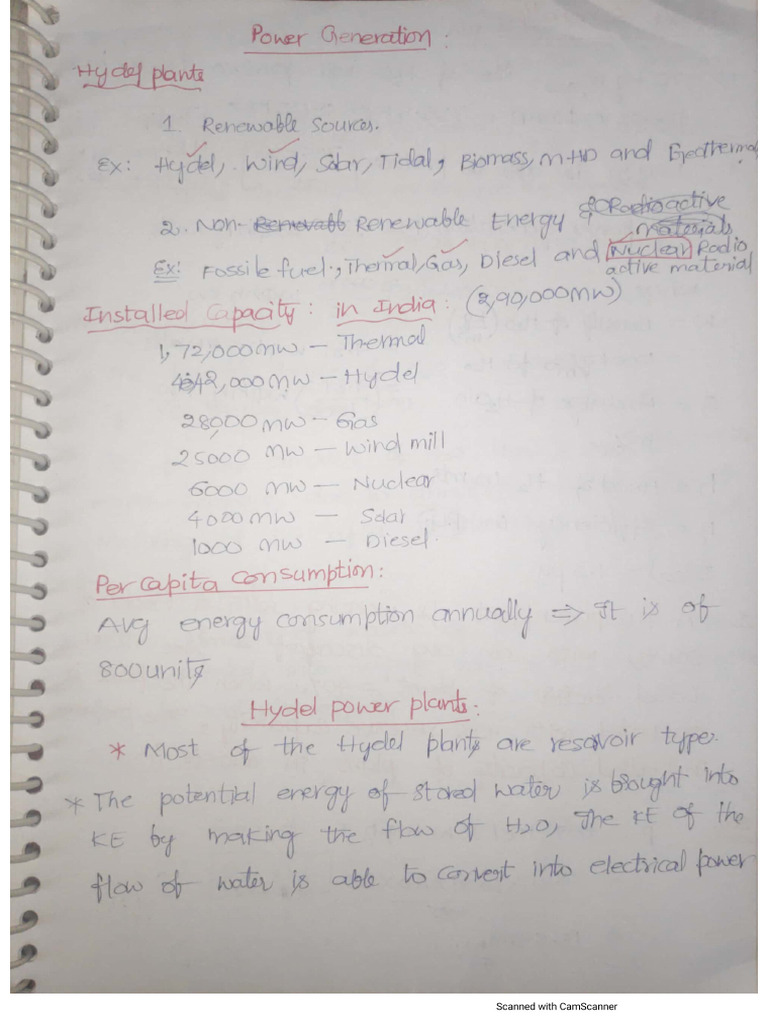 Power Generation:
Hydel plants
1. Renewable Sources.
Ex: Hydel, Wind, Solar, Tidal, Biomass, MHD and Geothermal
2. Non- Renewable Energy & Radioactive materials
Ex: Fossile fuel, Thermal, Gas, Diesel and Nuclear Radio
active material
Installed Capacity: in India: (2,90,000MW)
1,72,000MW – Thermal
42,000MW – Hydel
28000 MW – Gas
25000 MW – Wind mill
6000 MW – Nuclear
4000MW – Solar
1000 MW – Diesel.
Per Capita Consumption:
Avg energy consumption annually ⇒ It is of
800units
Hydel power plants:
* Most of the Hydel plants are resavoir type.
* The potential energy of stored water is brought into
KE by making the flow of H2O, The KE of the
flow of water is able to convert into electrical power
Scanned with CamScanner